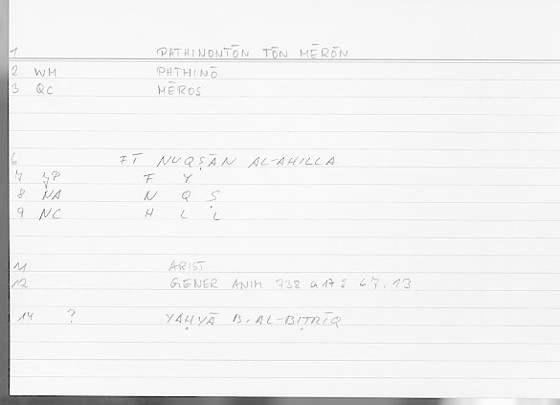 1 PATHINONTŌN TŌN MĒRŌN
2 WM PATHINŌ
3 QC MĒROS
6 FĪ NUQṢĀN AL-AHILLA
7 F Y
8 NA N Q Ṣ
9 NC H L L
11 ARIST
12 GENER ANIM 738 a 17
14 ? YAḤYĀ B. AL-BIṬRĪQ